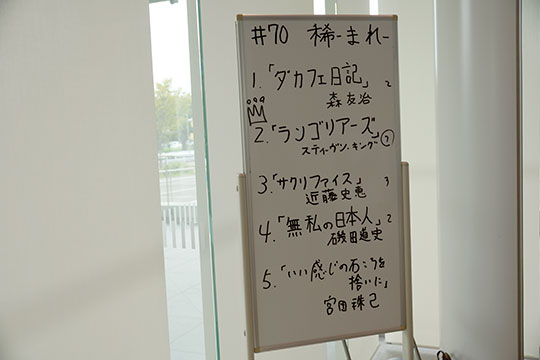 #70 稀-まれ-
1.「ダカフェ日記」 2
森友治
2.「ランゴリアーズ」
スティーヴン・キング ⑦
3.「サクリファイス」 3
近藤史恵
4.「無私の日本人」 2
磯田道史
5.「いい感じの石ころを
拾いに」
宮田珠己